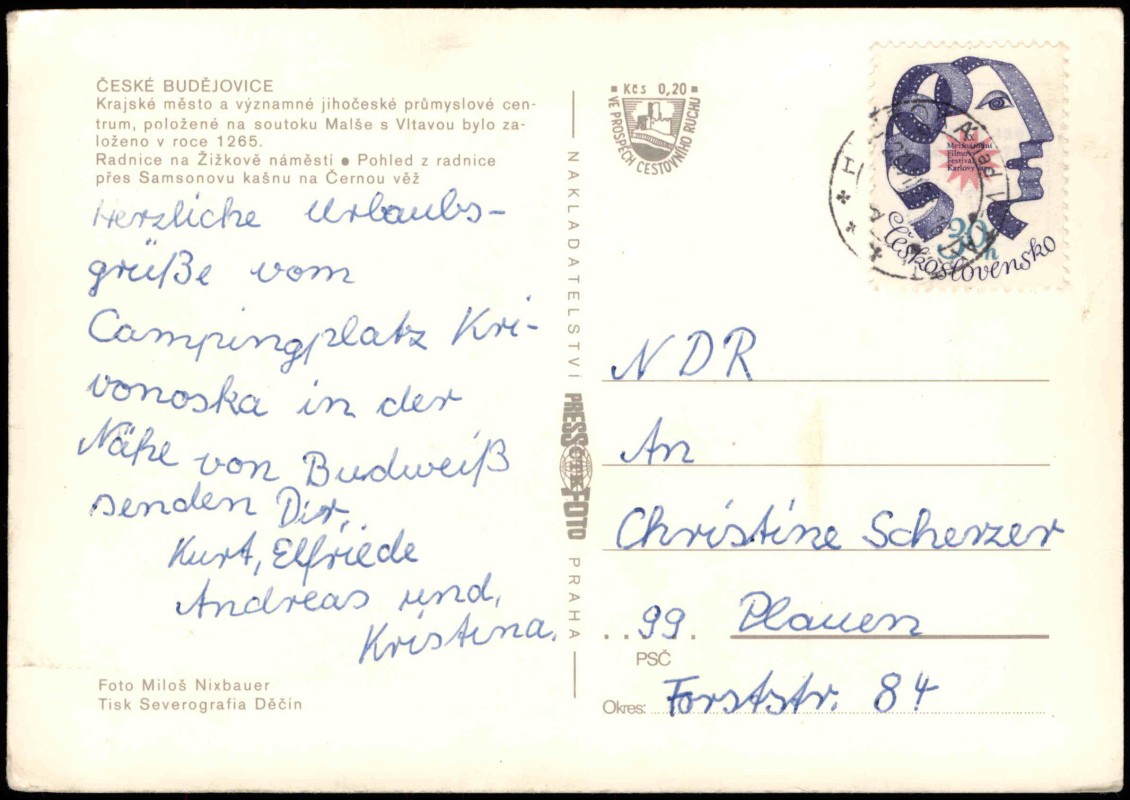 ČESKÉ BUDĚJOVICE
Krajské město a významné jihočeské průmyslové cen-
trum, položené na soutoku Malše s Vltavou bylo za-
loženo v roce 1265.
Radnice na Žižkově náměstí ● Pohled z radnice
přes Samsonovu kašnu na Černou věž
Herzliche Urlaubs-
grüße vom
Campingplatz Kri-
vonoska in der
Nähe von Budweiß
senden Dir,
Kurt, Elfriede
Andreas und,
Kristina.
Foto Miloš Nixbauer
Tisk Severografia Děčín
NAKLADATELSTVÍ
PRESSFOTO
PRAHA
Kčs 0,20
VE PROSPĚCH CESTOVNÍHO RUCHU
Mezinárodní
Filmový
Festival
Karlovy
30h
Československo
NDR
An
Christine Scherzer
99. Plauen
PSČ
Okres: Forststr. 84